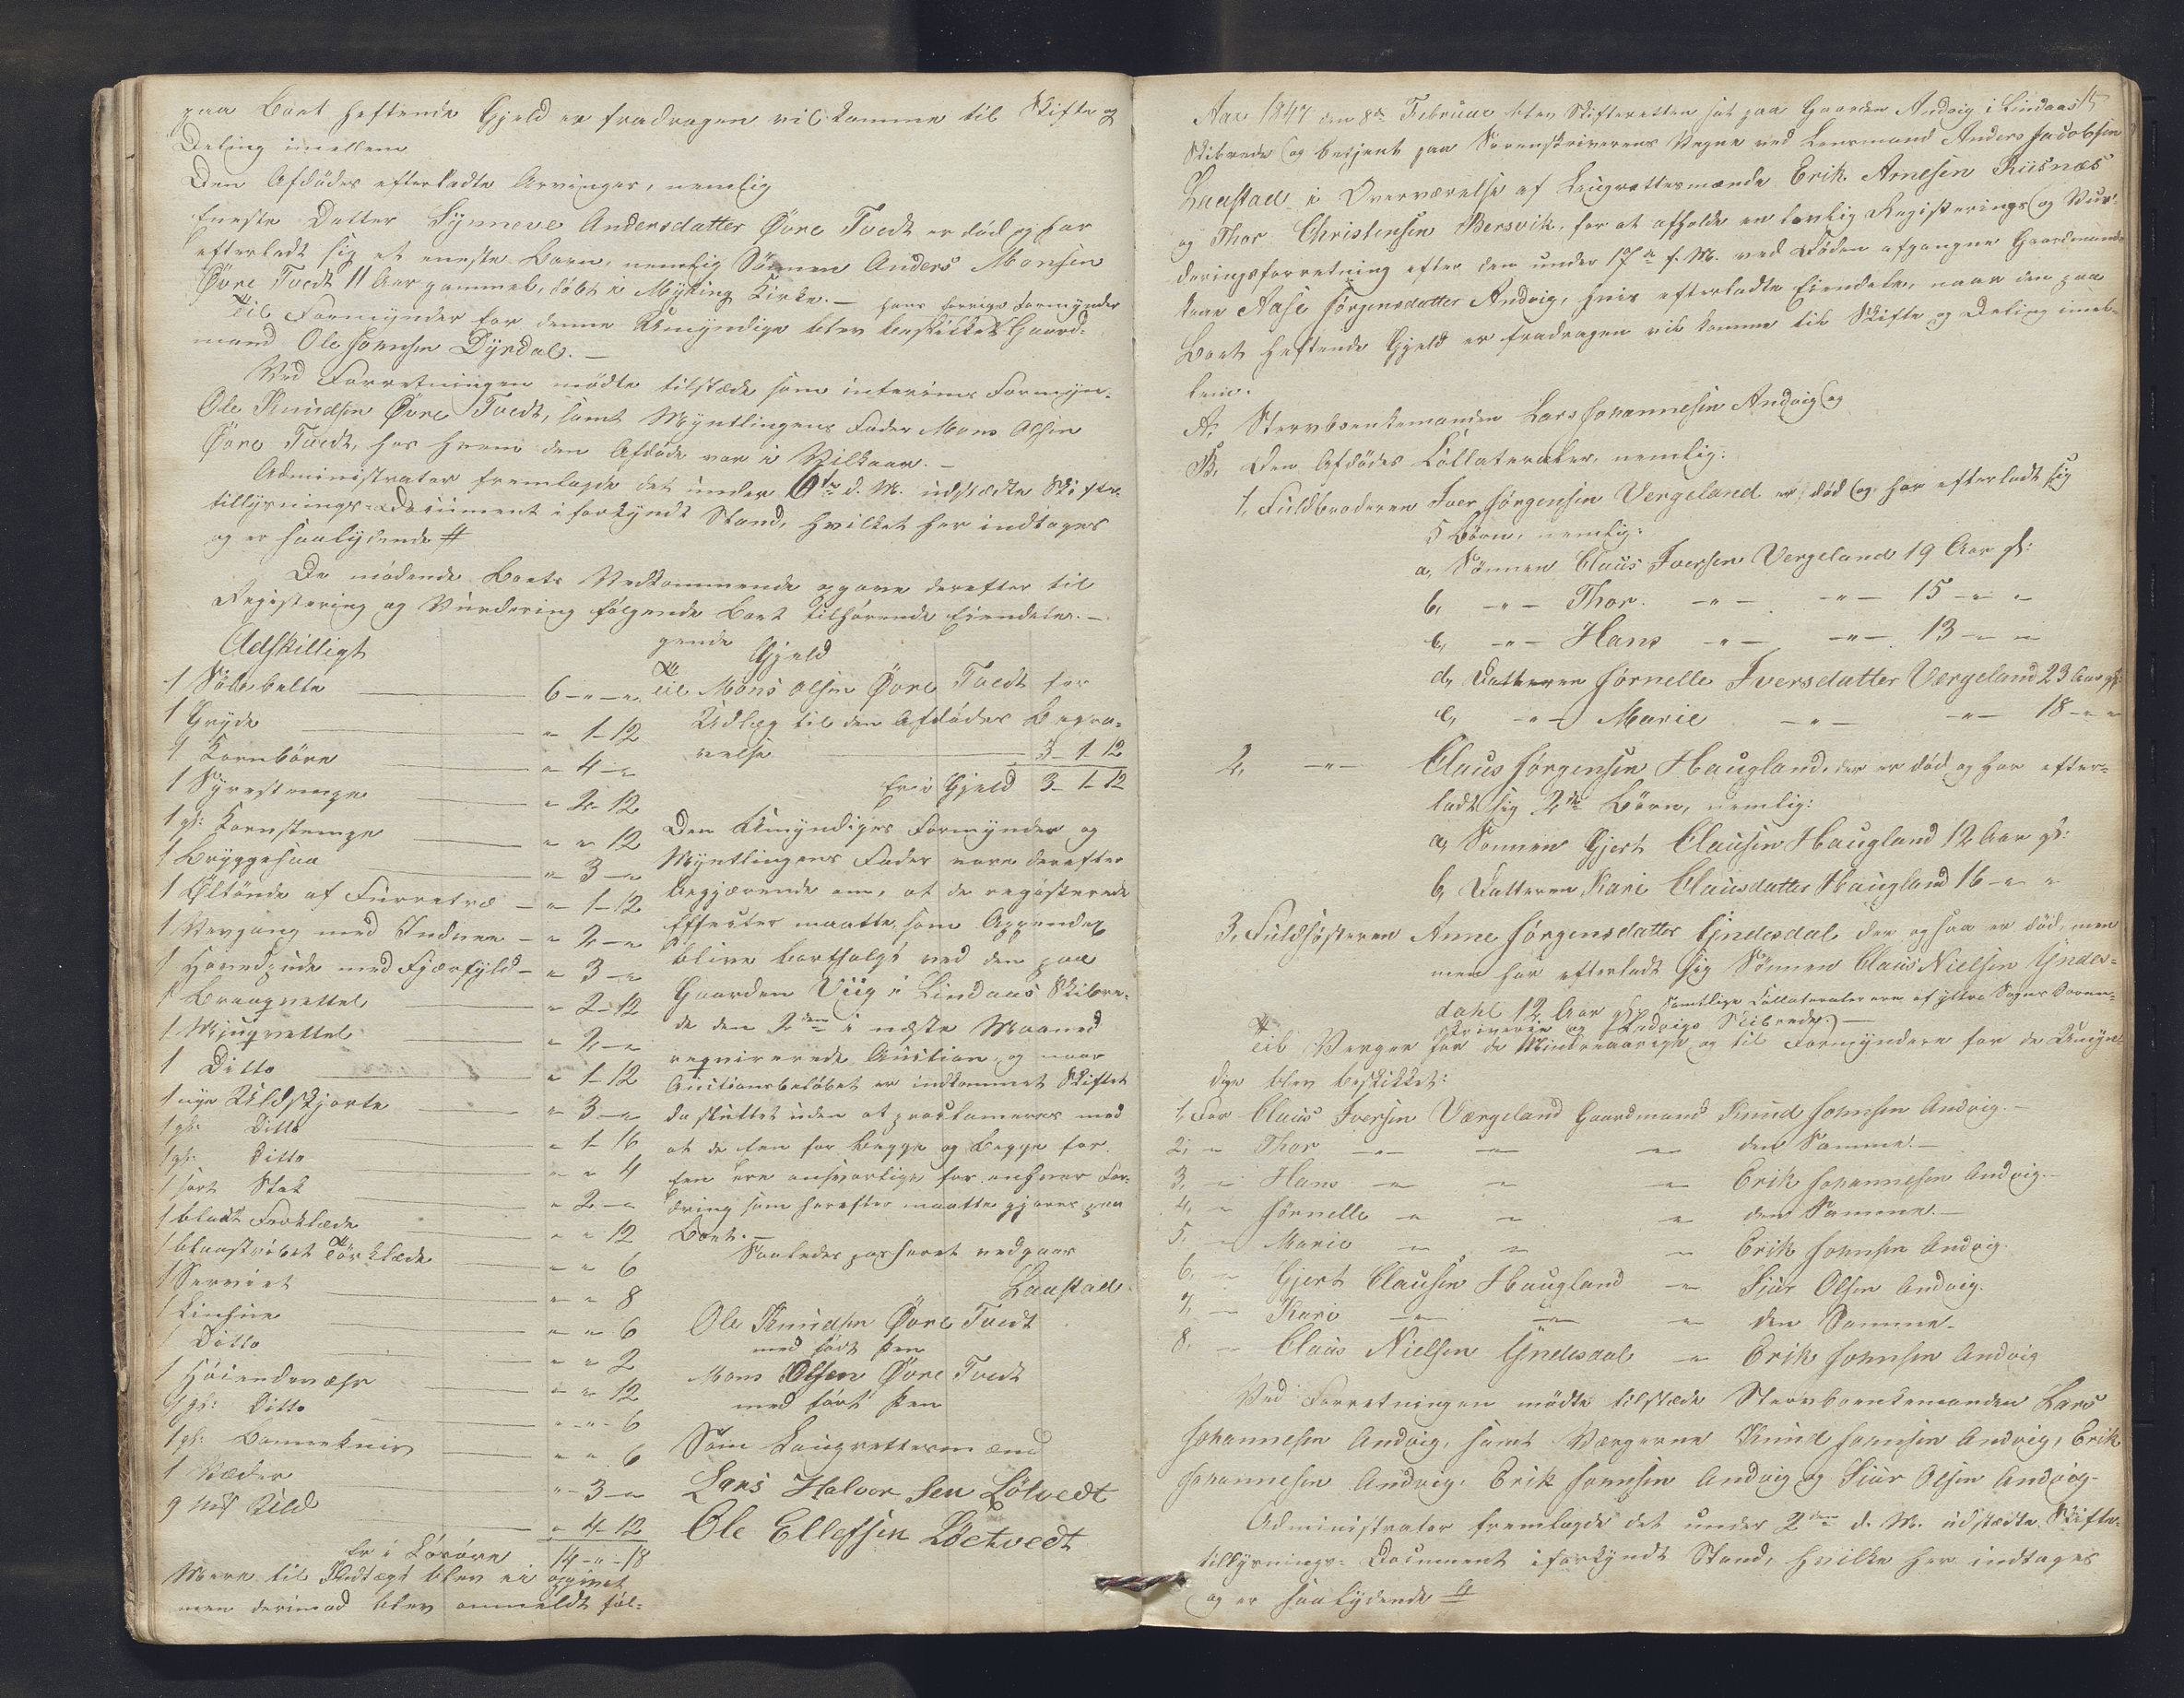 paa Boet heftende Gjeld er fradragen vil komme til Skifte og
Deling imellem
Den Afdödes efterladte Arvinger, nemlig
Eneste Datter Synneve Andersdatter Øvre Tvedt er död og har
efterladt sig et eneste Barn, nemlig Sönnen Anders Monsen
Øvre Tvedt 11 Aar gammel, döbt i Myking Kirke. —
Til Formynder for denne Umyndige blev beskikket Gaard-
mand Ole Johnsen Dyrdal. —
Ved Forretningen mödte tilstæde som interims Formyn-
Ole Knudsen Øvre Tvedt, samt Myndtlingens Fader Mons Olsen
Øvre Tvedt, hos hvem den Afdöde var i Vilkaar. —
Administrator fremlagde det under 6te d. M. udstædte Skifte-
tillysnings-Document i forkyndt Stand, hvilket her indtages
og er saalydende #
De mödende Boets Vedkommende opgave derefter til
Registering og Vurdering fölgende Boet tilhörende Eiendele. —
Adskilligt
1 Sölvbelte 6 - " - "
1 Gryde " 1 - 12
1 Kornböre " 4 - "
1 Syrestampe " 2 - 12
1 gl: Kornstampe " " 12
1 Bryggesaa " 3 - "
1 Öltönde af Furretræ " 1 - 12
1 Vevgang med Indren " 2 - "
1 Hovedpude med Fjærfyld " 3 - "
1 Braagvettel " 2 - 12
1 Mingvettel " 2 - "
1 Ditto " 1 - 12
1 nye Uldskjorte " 3 - "
1 gl: Ditto " 1 - 16
1 gl: Ditto " " 4
1 sort Stak " 2 - "
1 blaat Forklæde " " 12
1 blaastribet Törklæde " " 6
1 Serviet " " 8
1 Linhue " " 6
1 Ditto " " 2
1 Höiendevær " " 12
1 gl: Ditto " " 6
1 gl: " " 6
1 Væder " 3 - "
9 Uld " 4 - 12
Er i Lösöre 14 - " - 18
Mere til Indtægt blev ei opgivet
men derimod blev anmeldt föl-
gende Gjeld
Til Mons Olsen Øvre Tvedt for
Udlæg til den Afdödes Begra-
velse 3 - 1 - 12
Er i Gjeld 3 - 1 - 12
Den Umyndiges Formynder og
Myndtlingens Fader vare derefter
begjærende om, at de registerede
Effecter maatte, som Appendex
blive bortsolgt ved den paa
Gaarden Viig i Lindaas Skibre-
de den 2den i næste Maaned
reqvirerede Auction, og naar
Auctionsbelöbet er indkommet Skiftet
da sluttet uden at proclameres med
at de een for begge og begge for
een ere ansvarlige for enhver For-
dring som herefter maatte gjöres paa
Boet. —
Saaledes passeret vedgaaer
Laastad
Ole Knudsen Øvre Tvedt
med fört Pen
Mons Olsen Øvre Tvedt
med fört Pen
Som Laugrettesmænd
Lars Halvor sen Lötvedt
Ole Ellefsen Löetvedt
15
Aar 1847 den 8de Februar blev Skifteretten sat paa Gaarden Andvig i Lindaas
Skibrede og betjent paa Sorenskriverens Vegne ved Lensmand Anders Jacobsen
Laastad i Overværelse af Laugrettesmænde Erik Arnesen Riisnæs
og Thor Christensen Bersvik, for at afholde en lovlig Registerings og Vur-
deringsforretning efter den under 17de f. M. ved Döden afgangne Gaardmands
kone Aase Jörgensdatter Andvig, hvis efterladte Eiendele, naar den paa
Boet heftende Gjeld er fradragen vil komme til Skifte og Deling imel-
lem.
A, Stervboenkemanden Lars Johannesen Andvig og
B, Den Afdödes Collateraler, nemlig:
1, Fuldbroderen Iver Jörgensen Vergeland er död og har efterladt sig
5 Börn, nemlig:
a, Sönnen Claus Iversen Vergeland 19 Aar gl:
b, - " - Thor - " - - " - 15 - " "
c, - " - Hans - " - - " - 13 - " "
d, Datteren Jörnelle Iversdatter Vergeland 23 Aar gl:
e, - " - Marie - " - - " - 18 - " "
2, - " - Claus Jörgensen Haugland, der er död og har efter-
ladt sig 2de Börn, nemlig:
a, Sönnen Gjert Clausen Haugland 12 Aar gl:
b, Datteren Kari Clausdatter Haugland 16 - " "
3, Fuldsösteren Anne Jörgensdatter Yndesdal der ogsaa er död, men
men har efterladt sig Sönnen Claus Nielsen Yndes-
dahl 12 Aar gl: Samtlige Collateraler ere af yttre Sogns Soren-
skriverie og Skibrede.) —
Til Verger for de Mindreaarige og til Formyndere for de Umyn-
dige blev beskikket:
1, For Claus Iversen Værgeland Gaardmand Knud Johnsen Andvig —
2, " Thor " " " den Samme. —
3, " Hans " " " Erik Johannesen Andvig. —
4, " Jörnelle " " " den Samme. —
5, " Marie " " " Erik Johnsen Andvig.
6, " Gjert Clausen Haugland " Siur Olsen Andvig.
7, " Kari " " " den Samme.
8, " Claus Nielsen Yndesdal " Erik Johnsen Andvig
Ved Forretningen mödte tilstæde Stervboenkemanden Lars
Johannesen Andvig, samt Værgerne Knud Johnsen Andvig, Erik
Johannesen Andvig, Erik Johnsen Andvig og Siur Olsen Andvig.
Administrator fremlagde det under 2den d. M. udstædte Skifte-
tillysnings-Document i forkyndt Stand, hvilke her indtages
og er saalydende #